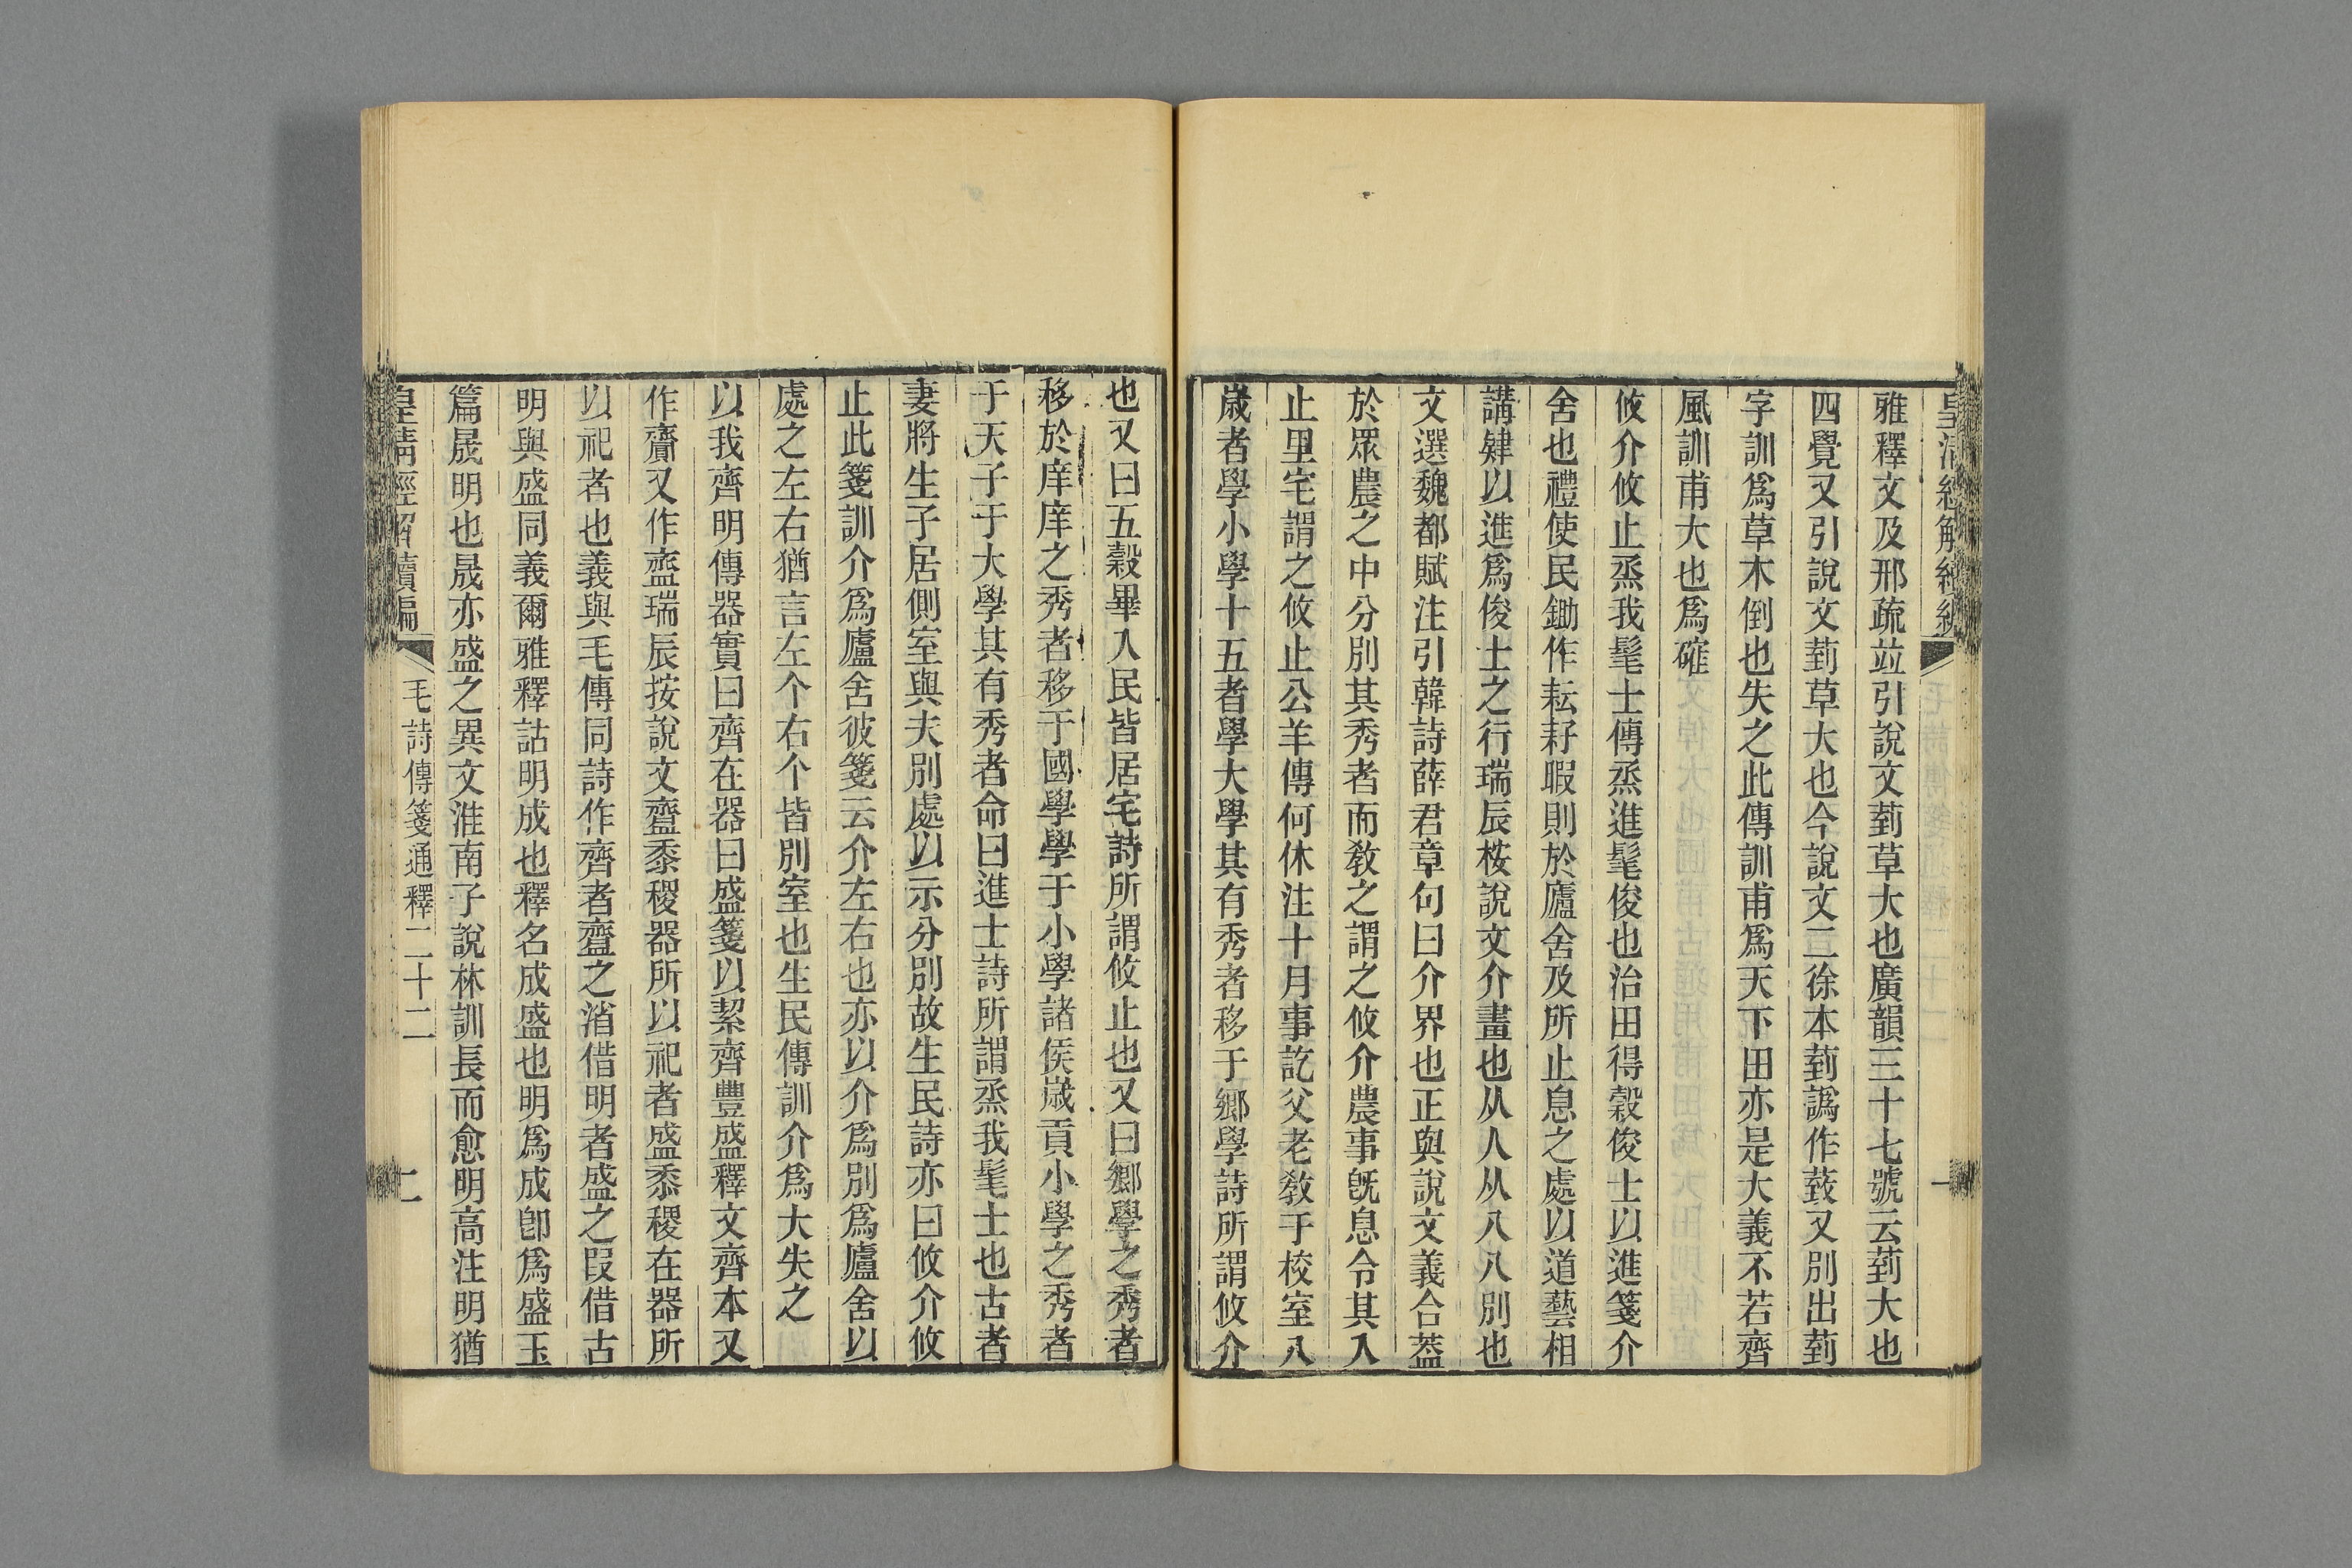 雅釋文及邢疏竝引說文菿草大也廣韻三十七號云菿大也
四覺又引說文菿草大也今說文二徐本菿譌作蔱又別出菿
字訓爲草木倒也失之此傳訓甫爲天下田亦是大義不若齊
風訓甫大也爲確
攸介攸止烝我髦士傳烝進髦俊也治田得穀俊士以進箋介
舍也禮使民鋤作耘耔暇則於廬舍及所止息之處以道藝相
講肄以進爲俊士之行瑞辰桉說文介畫也从人从八八別也
文選魏都賦注引韓詩薛君章句曰介界也正與說文義合葢
於眾農之中分別其秀者而敎之謂之攸介農事旣息令其入
止里宅謂之攸止公羊傳何休注十月事訖父老敎于校室八
歲者學小學十五者學大學其有秀者移于鄉學詩所謂攸介
也又曰五穀畢入民皆居宅詩所謂攸止也又曰鄉學之秀者
移於庠庠之秀者移于國學學于小學諸侯歲貢小學之秀者
于天子于大學其有秀者命曰進士詩所謂烝我髦士也古者
妻將生子居側室與夫別處以示分別故生民詩亦曰攸介攸
止此箋訓介爲廬舍彼箋云介左右也亦以介爲別爲廬舍以
處之左右猶言左个右个皆別室也生民傳訓介爲大失之
以我齊明傳器實曰齊在器曰盛箋以絜齊豐盛釋文齊本又
作齍又作齍瑞辰按說文齍黍稷器所以祀者盛黍稷在器所
以祀者也義與毛傳同詩作齊者齍之渻借明者盛之叚借古
明與盛同義爾雅釋詁明成也釋名成盛也明爲成卽爲盛玉
篇晟明也晟亦盛之異文淮南子說林訓長而愈明高注明猶
皇清經解續編
毛詩傳箋通釋二十二
二